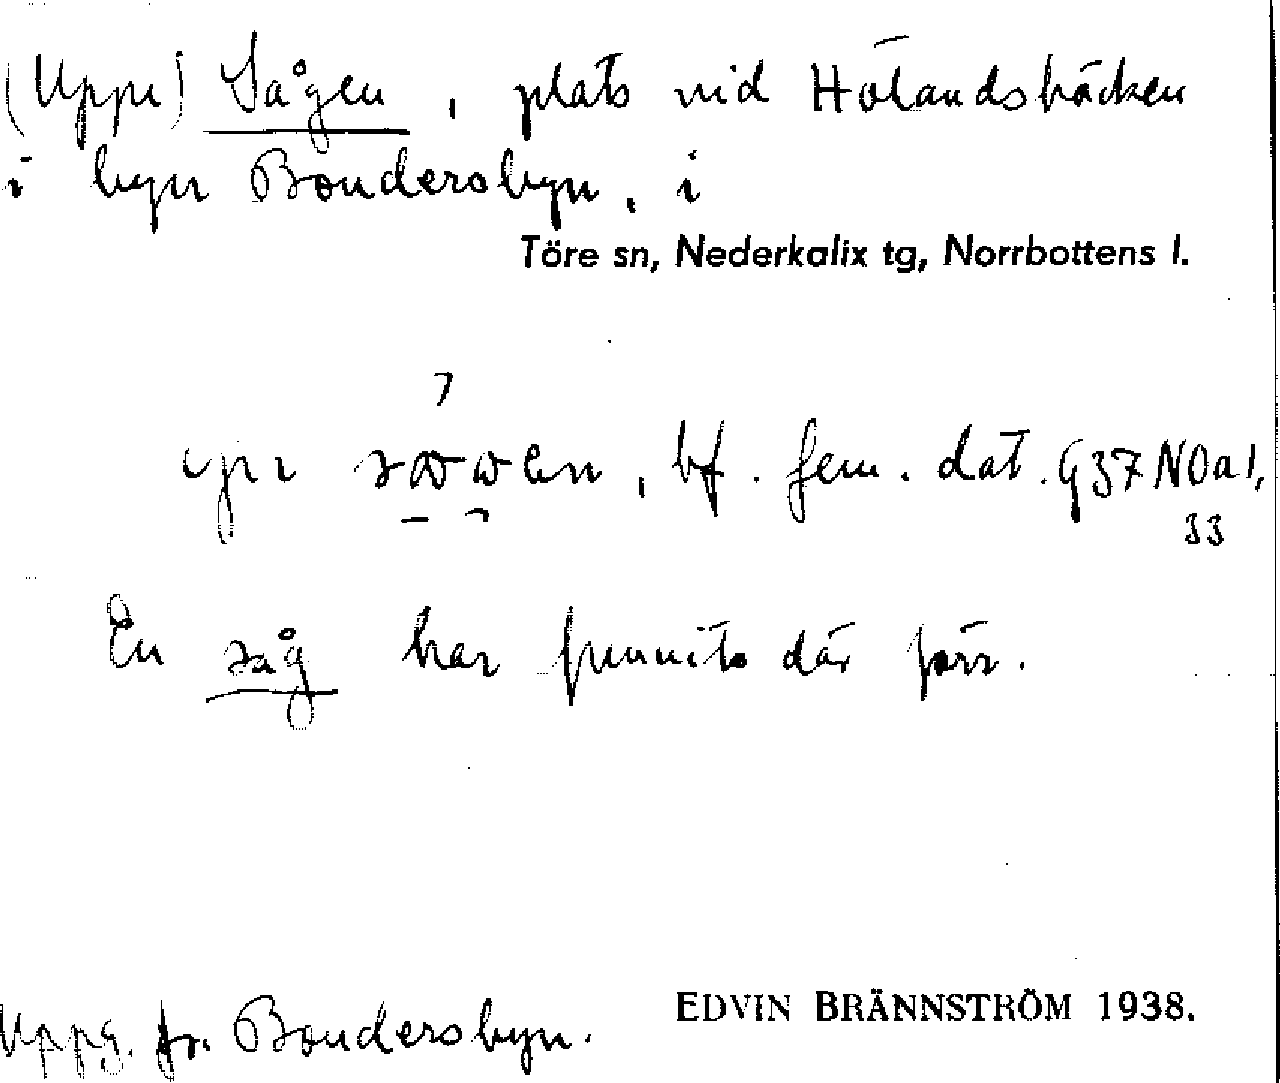 (Uppi) Sågen, plats vid Hölandsbäcken
i byn Bondersbyn, i
Töre sn, Nederkalix tg, Norrbottens l.
bf. fem. dat. G37 NOa1,
33
En såg har funnits där förr.
Uppg. fr. Bondersbyn.
EDVIN BRÄNNSTRÖM 1938.